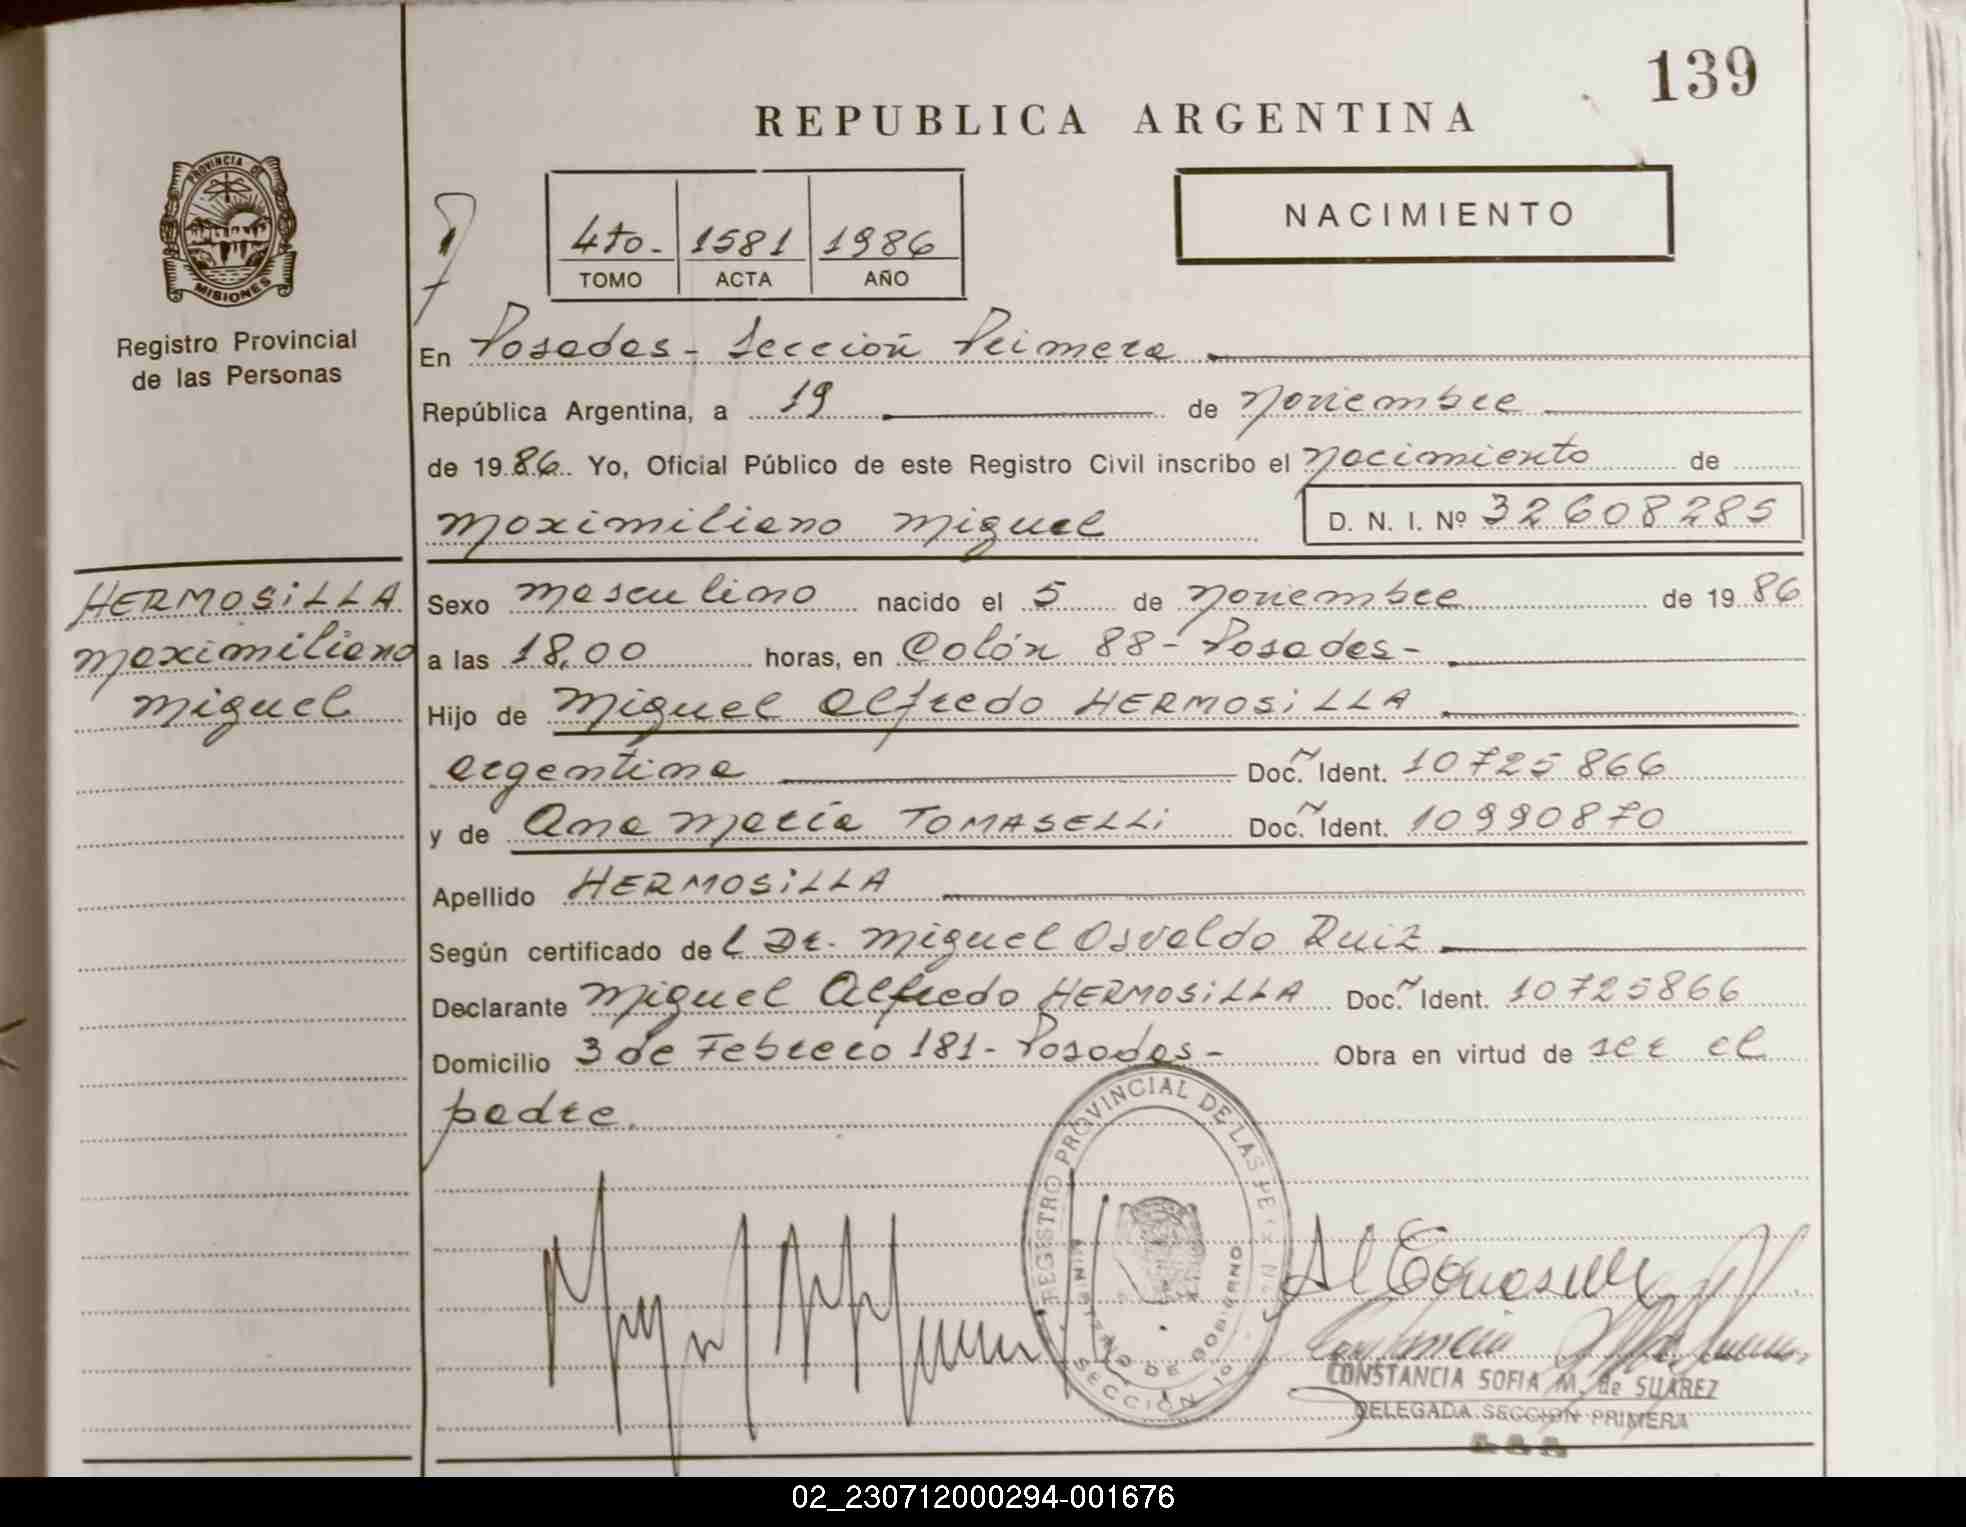 139
REPUBLICA ARGENTINA
PROVINCIA DE
MISIONES
Registro Provincial
de las Personas
4to.- 1581 1986
TOMO ACTA AÑO
NACIMIENTO
En Posadas - Sección Primera
República Argentina, a 19 de Noviembre
de 1986. Yo, Oficial Público de este Registro Civil inscribo el Nacimiento de
Maximiliano Miguel D. N. I. Nº 32608285
HERMOSILLA
Maximiliano
Miguel
Sexo masculino nacido el 5 de Noviembre de 1986
a las 18,00 horas, en Colón 88 - Posadas -
Hijo de Miguel Alfredo HERMOSILLA
argentina Doc. Ident. 10725866
y de Ana María TOMASELLI Doc. Ident. 10990870
Apellido HERMOSILLA
Según certificado del Dr. Miguel Osvaldo Ruiz
Declarante Miguel Alfredo HERMOSILLA Doc. Ident. 10725866
Domicilio 3 de Febrero 181 - Posadas - Obra en virtud de ser el
padre.
REGISTRO PROVINCIAL DE LAS PE
MINISTERIO DE GOBIERNO
SECCION 1º
CONSTANCIA SOFIA M. de SUAREZ
DELEGADA SECCION PRIMERA
02_230712000294-001676